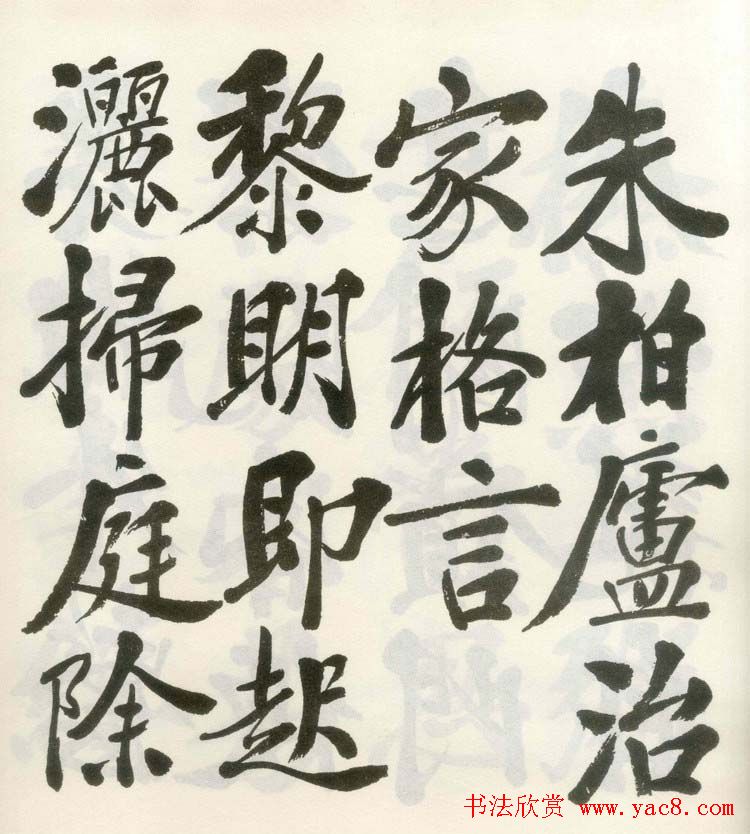 朱柏廬治
家格言
黎明即起
灑掃庭除
书法欣赏 www.yac8.com